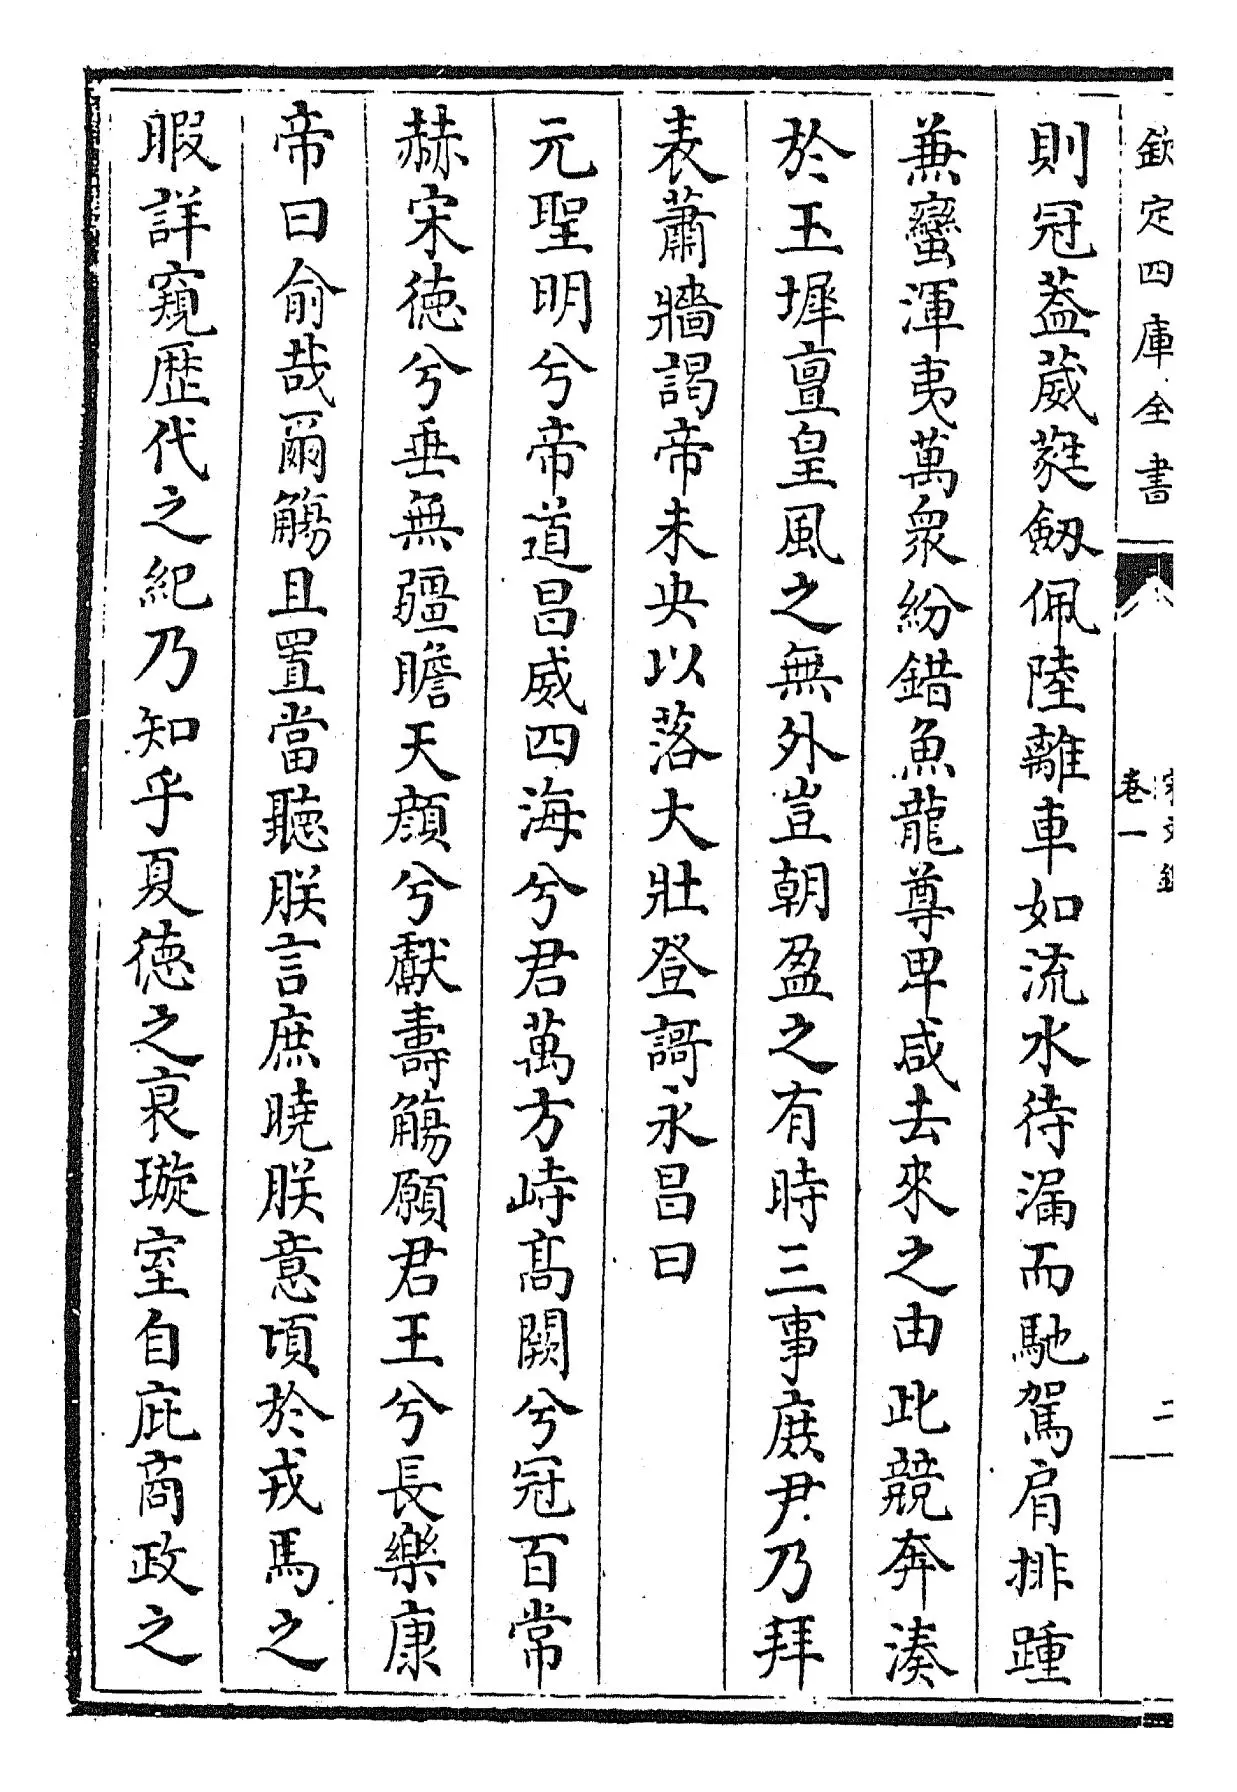 欽定四庫全書
卷一
二
則冠蓋葳蕤劔佩陸離車如流水待漏而馳駕肩排踵
兼蠻渾夷萬衆紛錯魚龍尊卑咸去來之由此競奔湊
於玉墀亶皇風之無外豈朝盈之有時三事庶尹乃拜
表蕭牆謁帝未央以落大壯登謌永昌曰
元聖明兮帝道昌威四海兮君萬方峙髙闕兮冠百常
赫宋徳兮垂無疆瞻天顔兮獻壽觴願君王兮長樂康
帝曰俞哉爾觴且置當聽朕言庶曉朕意頃於戎馬之
暇詳窺歴代之紀乃知乎夏徳之衰璇室自庇商政之